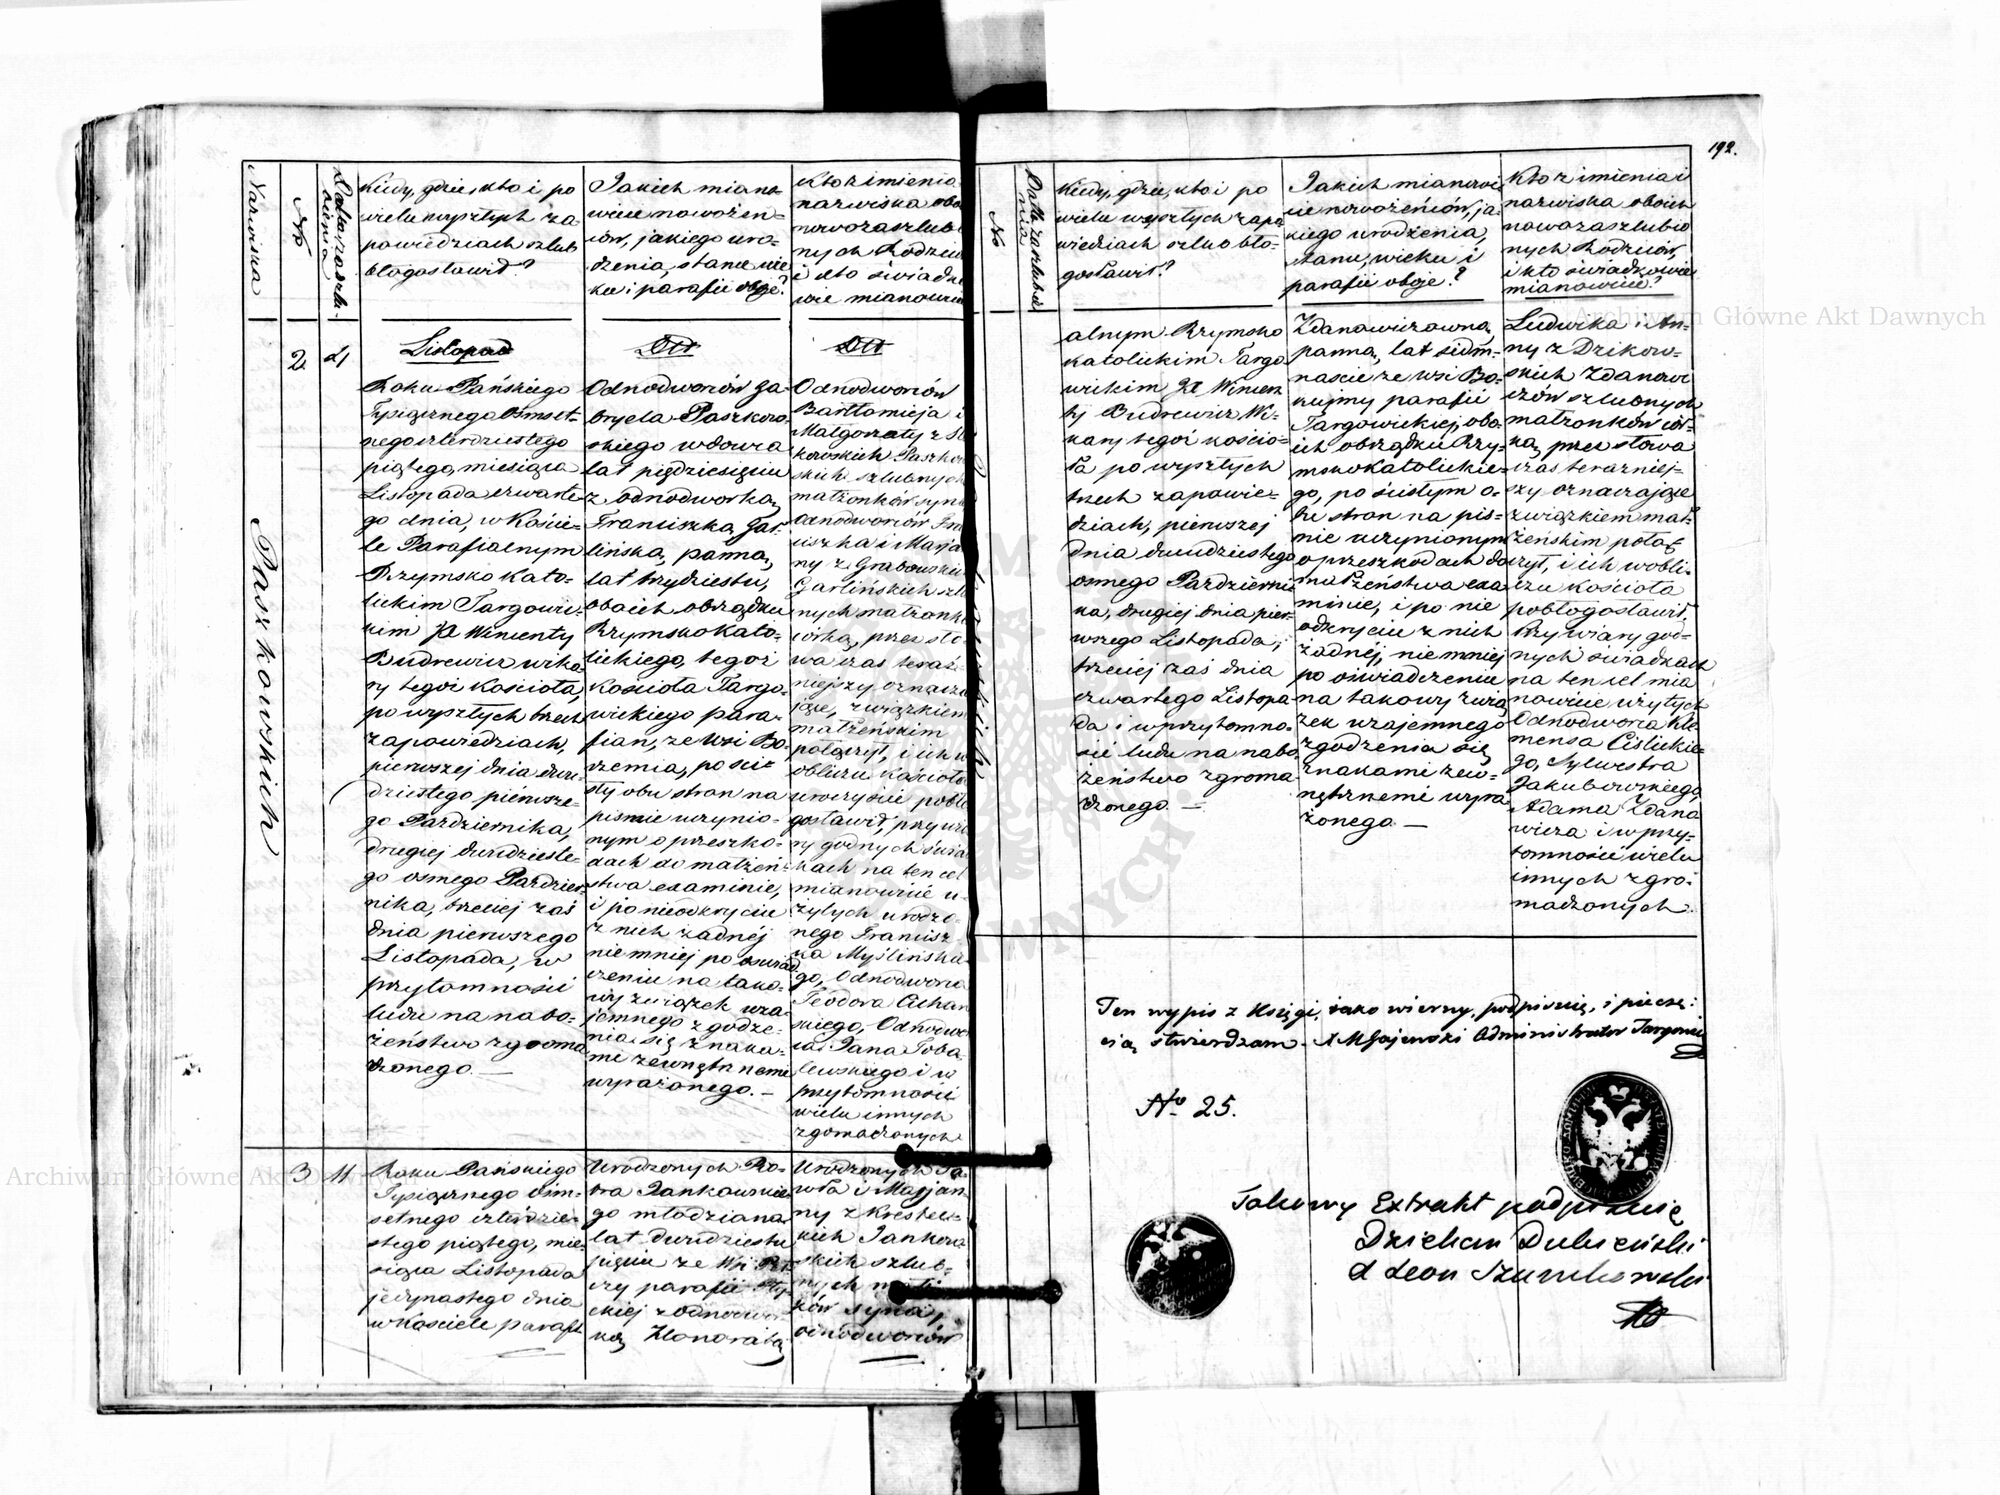 192.
Nazwiska
No
Data zaszlu-
bienia
Kiedy, gdzie, kto i po
wielu wyszłych za
powiedziach szlub
błogosławił?
Jakich miano
wicie nowożeń-
ców, jakiego uro-
dzenia, stanu, wie
ku i parafii oboje?
Kto z imienia
nazwiska obo
nowozaszlubi
nych Rodzice
i kto świadko
wie mianowicie
Paszkowskich
2.
4
Listopad
Roku Pańskiego
Tysiącznego Ośmset-
nego czterdziestego
piątego, miesiąca
Listopada czwarte
go dnia, w Koście-
le Parafialnym
Rzymsko Kato-
lickim Targowic-
kim JX Wincenty
Budrewicz wika-
ry tegoż Kościoła,
po wyszłych trzech
zapowiedziach,
pierwszej dnia dwu-
dziestego pierwsze-
go Października,
drugiej dwudzieste-
go osmego Paździer-
nika, trzeciej zaś
dnia pierwszego
Listopada, w
przytomności
ludu na nabo-
żeństwo zgroma
dzonego.—
Odnodworców Ga-
bryela Paszkow-
skiego wdowca
lat pięćdziesięciu
z odnodworką
Franciszką Gar-
lińską, panną,
lat trzydziestu,
oboich obrządku
Rzymsko Kato-
lickiego, tegoż
Kościoła Targo-
wickiego para-
fian, ze wsi Bo-
remia, po ści-
słym obu stron na
piśmie uczynio-
nym o przeszko-
dach do małżeń-
stwa examinie,
i po nieodkryciu
z nich żadnéj
niemniej po oświad
czeniu na tako-
wy związek wza-
jemnego zgodze-
nia się znaka-
mi zewnętrznemi
wyrażonego.—
Odnodworców
Bartłomieja i
Małgorzaty z
kowskich Paszkow
skich szlubnych
małżonków syna
Odnodworców Fran
ciszka i Marja
ny z Grabowskich
Garlińskich szlu
nych małżonk
córką, przez sło
wa czas teraź-
niejszy oznacza
jące, związkiem
małżeńskim
połączył, i ich w
obliczu Kościoła
uroczyście pobło
gosławił, przy wia
ry godnych świa
kach na ten cel
mianowicie u-
żytych urodzo
nego Francisz
ka Myślińskie
go, Odnodworca
Teodora Cichań
skiego, Odnodwor
ca Jana Toba-
lewskiego i w
przytomności
wielu innych
zgomadzonych
3
11
Roku Pańskiego
Tysiącznego ośm-
setnego czterdzie-
stego piątego, mie-
siąca Listopada
jedynastego dnia
w Kościele parafi
Urodzonych Pio-
tra Jankowskie
go młodziana
lat dwudziestu
pięciu ze wsi
czy parafii
ckiej z odnodwor
ką Honoratą
Urodzonych Pa-
wła i Marjan
ny z
kich Jankow
skich szlub-
nych małżon
ków syna,
odnodworców
No
Data zaszlubie
nia
Kiedy, gdzie, kto i po
wielu wyszłych zapo
wiedziach szlub bło-
gosławił?
Jakich mianowi
cie nowożeńców, ja-
kiego urodzenia,
stanu, wieku i
parafii oboje?
Kto z imienia i
nazwiska oboich
nowozaszlubio
nych Rodziców,
i kto świadkowie
mianowicie?
alnym Rzymsko
Katolickim Targo
wickim JX Wincen
ty Budrewicz Wi-
kary tegoż Kościo-
ła po wyszłych
trzech zapowie-
dziach, pierwszej
dnia dwudziestego
osmego Październi
ka, drugiej dnia pier-
wszego Listopada,
trzeciej zaś dnia
czwartego Listopa-
da i w przytomno-
ści ludu na nabo-
żeństwo zgroma
dzonego.—
Zdanowiczowną,
panną, lat siedm-
naście ze wsi Bo-
kujmy parafii
Targowickiej, obo-
ich obrządku Rzy-
msko Katolickie-
go, po ścisłym o-
bu stron na piś-
mie uczynionym
o przeszkodach do
małżeństwa exa
minie, i po nie
odkryciu z nich
żadnéj, niemniej
po oświadczeniu
na takowy zwią-
zek wzajemnego
zgodzenia się
znakami zew-
nętrznemi wyra
żonego.—
Ludwika i An-
ny z Dzikow-
skich Zdanowi
czów szlubnych
małżonków cór-
ką, przez słowa
czas terazniej-
szy oznaczające
związkiem mał-
żeńskim połą-
czył, i ich w obli-
czu Kościoła
pobłogosławił,
Przy wiary god-
nych świadkach
na ten cel mia
nowicie użytych
Odnodworca Kle-
mensa Cislickie-
go, Sylwestra
Jakubowskiego,
Adama Zdano
wicza i w przy-
tomności wielu
innych zgro-
madzonych.
Ten wypis z Księgi, jako wierny, podpisuję, i pieczę-
cią stwierdzam. X M Gajewski Administrator Targowic
No 25.
Takowy Extrakt podpisuję
Dziekan Dubieński
X Leon Szumkowski
Archiwum Główne Akt Dawnych
Archiwum Główne Akt Dawnych